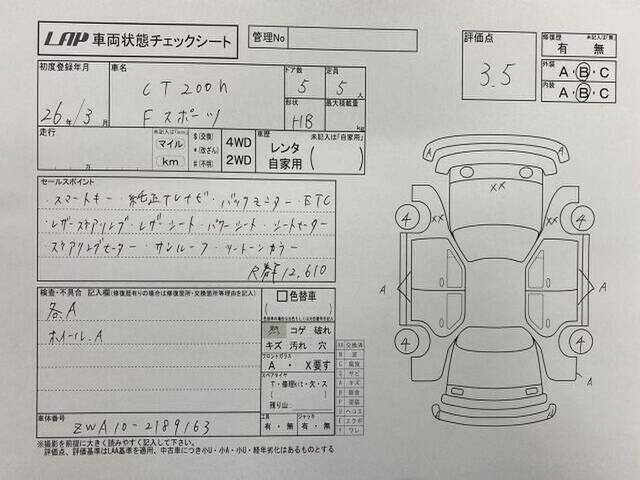 LAP 車両状態チェックシート
管理No
評価点
3.5
修復歴 未記入は「無」
有・無
外装 A・B・C
内装 A・B・C
初度登録年月
26年/3月
車名
CT200h
Fスポーツ
ドア数 5
定員 5人
形状 HB
最大積載量 kg
走行
未記入は(km)
マイル
km
万
$(交換)
*(改ざん)
#(不明)
4WD
2WD
車歴 未記入は「自家用」
レンタ
自家用
セールスポイント
・スマートキー ・純正ナビTV ・バックモニター ・ETC
・レザーステアリング ・レザーシート ・パワーシート ・シートヒーター
・ステアリングヒーター ・サンルーフ ・ツートンカラー
R券¥12,610
検査・不具合 記入欄(修復歴有りの場合は修復箇所・交換箇所等理由を記入)
各.A
ホイール.A
色替車
室内シート コゲ 破れ
キズ 汚れ 穴
フロントガラス
A ・ X要す
スペアタイヤ
T・修理kit・欠・ス
残り山:
工具
有・無
ジャッキ
有・無
XX 交換済
W 波
C 腐食
S サビ
A キズ
P 塗装
U ヘコミ
E エクボ
Y ワレ
車体番号
ZWA10-2189163
※撮影を前提に大きく読みやすく記入して下さい。
評価点、評価基準はLAA基準を適用、中古車につき小U・小A・小U・経年劣化はあるものとする
A
A
XX
4
XX
XX
4
A
A
4
4
A